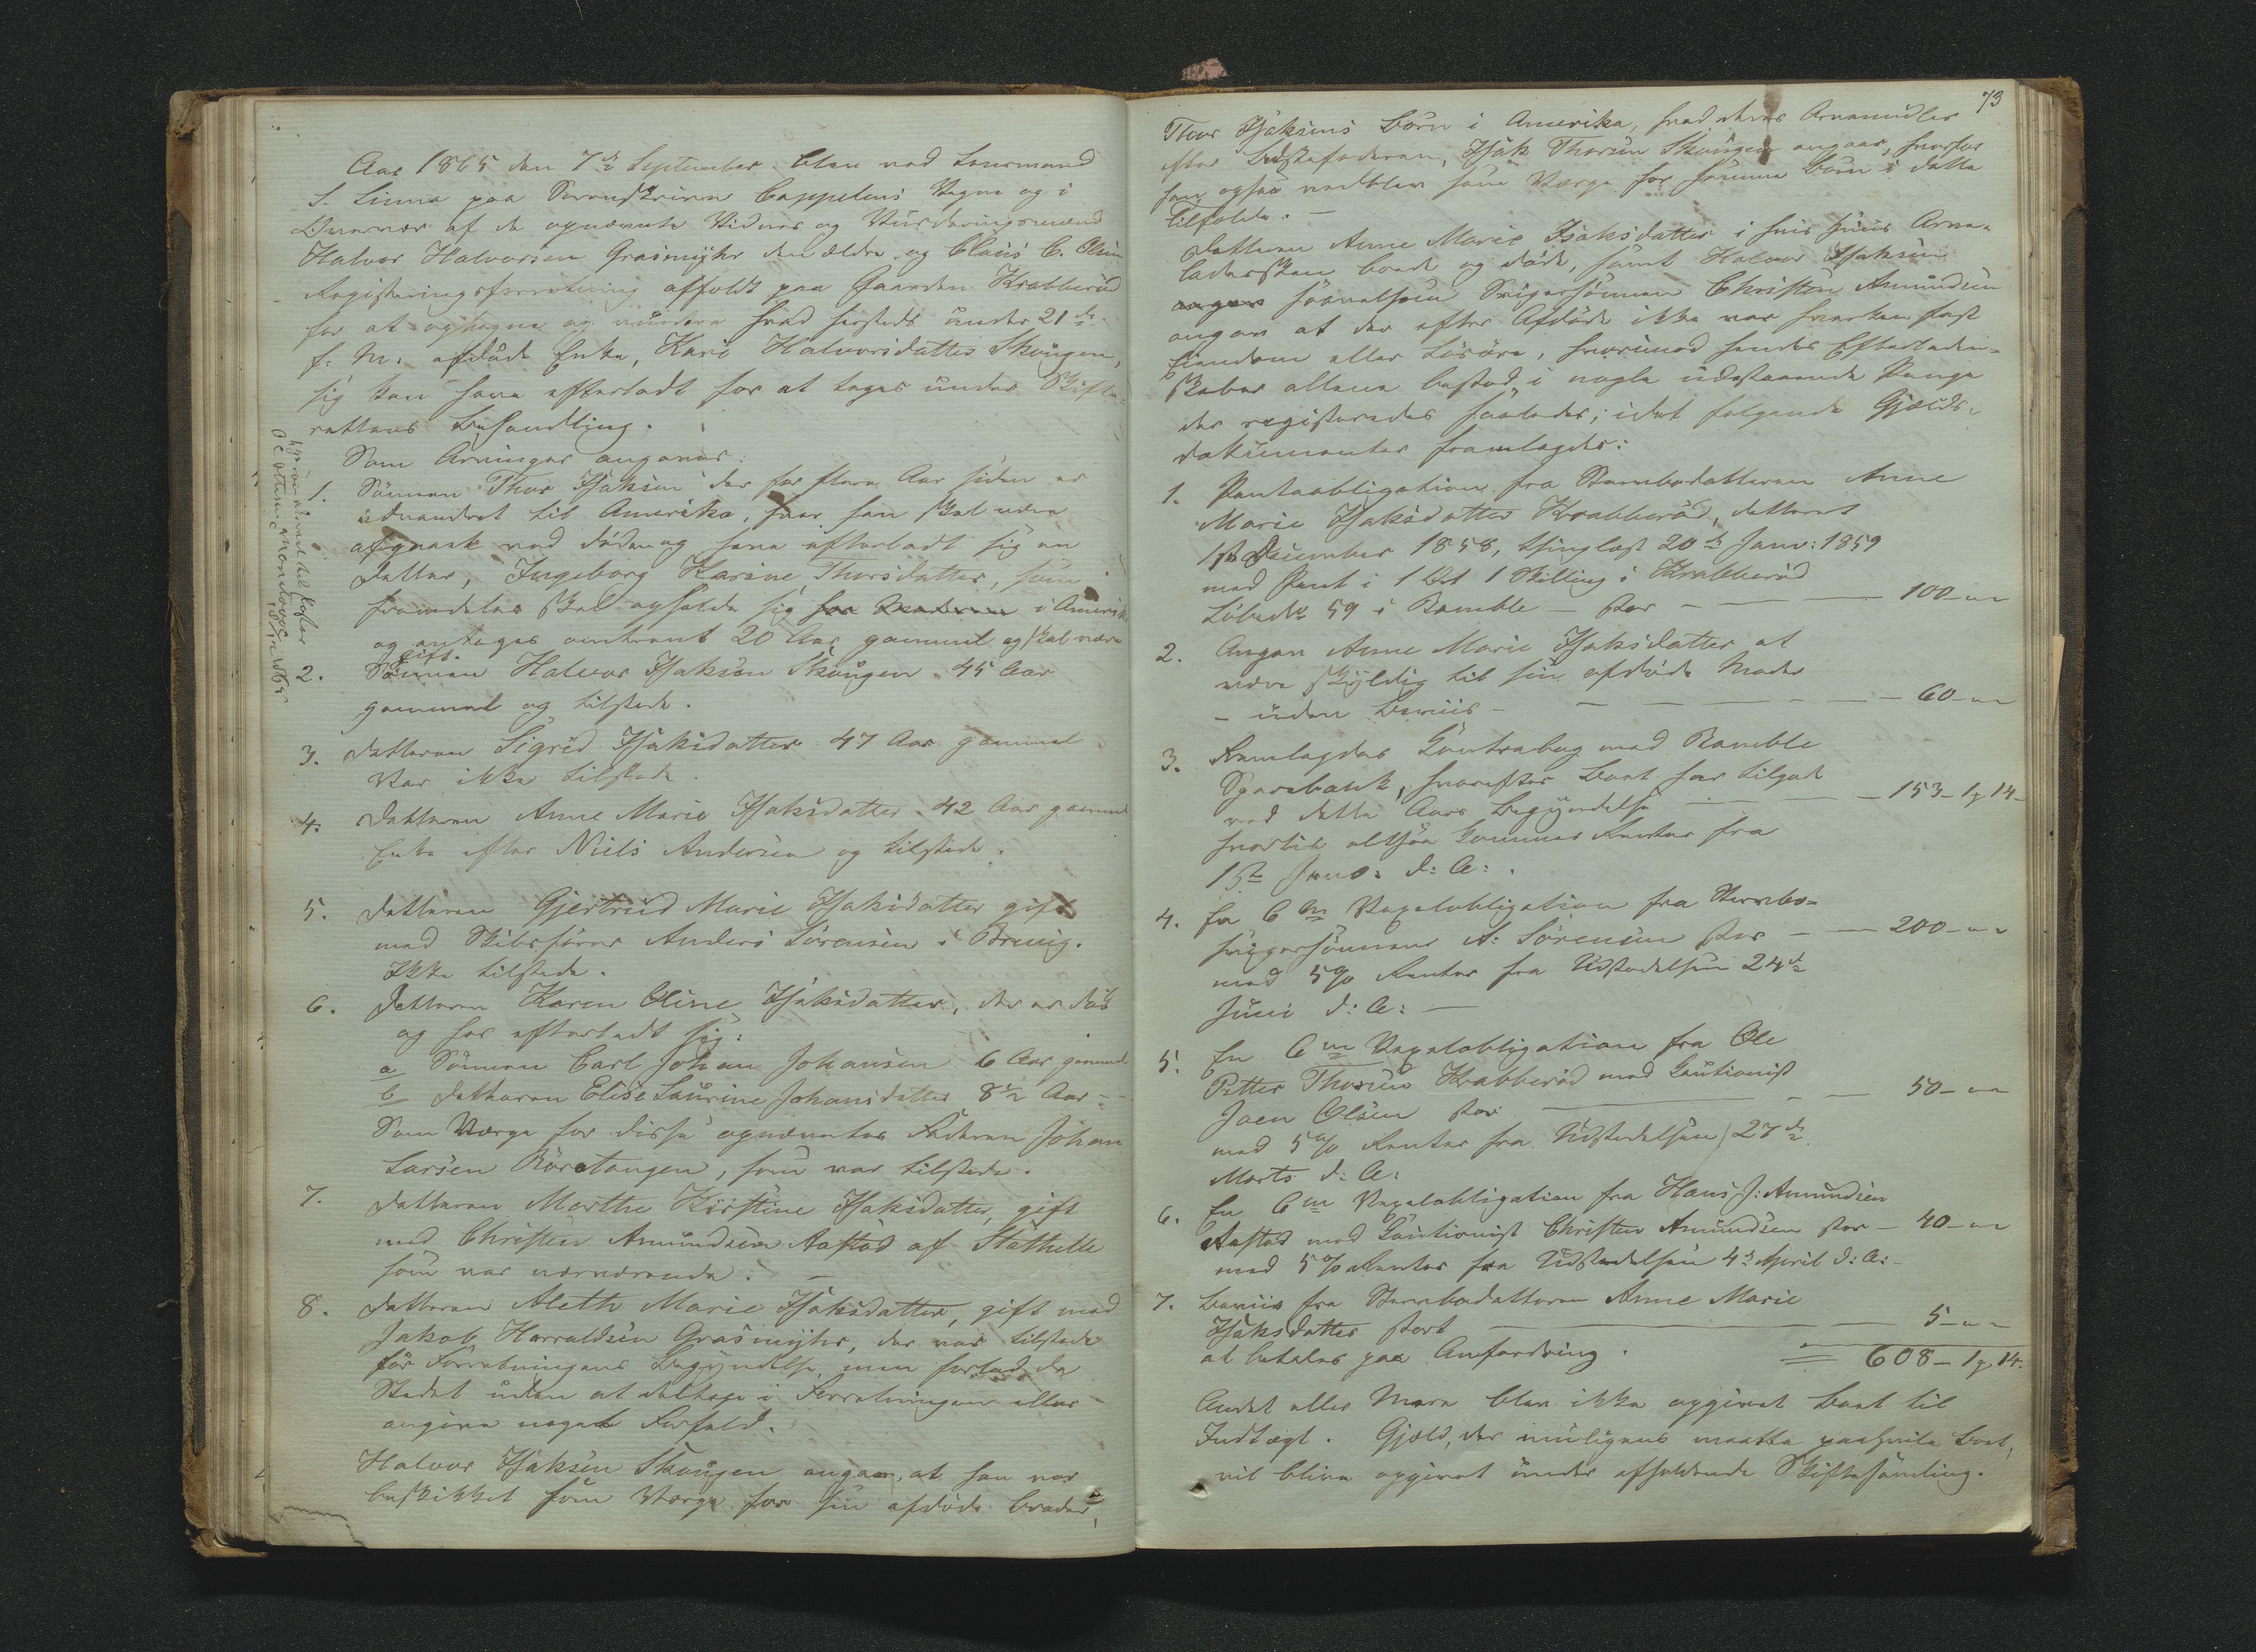 Aar 1865 den 7de September blev ved Lensmand
S. Linna paa Sorenskriver Cappelens Vegne og i
Overvær af de opnævnte Vidner og Vurderingsmænd
Halvor Halvorsen Grasmyhr den ældre og Claus C. Olsen
Registreringsforretning afholdt paa Gaarden Krabberød
for at optegne og vurdere hvad hersteds under 21de
f: M: afdøde Enke, Kari Halvorsdatter Skougen,
sig kan have efterladt for at tages under Skifte-
rettens Behandling.
Som Arvinger angaves:
1. Sønnen Thor Isaksen der for flere Aar siden er
udvandret til Amerika, hvor han skal være
afgaaet ved døden og have efterladt sig en
datter, Ingeborg Karine Thorsdatter, som
fremdeles skal opholde sig hos Moderen i Amerika
og antages omtrent 20 Aar gammel og skal være
gift.
2. Sønnen Halvor Isaksen Skougen 45 Aar
gammel og tilstede.
3. Datteren Sigrid Isaksdatter 47 Aar gammel
Var ikke tilstede.
4. Datteren Anne Marie Isaksdatter 42 Aar gammel
Enke efter Niels Andersen og tilstede.
5. Datteren Gjertrud Marie Isaksdatter gift
med Skibsfører Anders Sørensen i Brevig.
Ikke tilstede.
6. Datteren Karen Oline Isaksdatter, der er død
og har efterladt sig:
a Sønnen Carl Johan Johansen 6 Aar gammel
b Datteren Elise Laurine Johansdatter 8 1/2 Aar - -
Som Værge for disse opnævntes Faderen Johan
Larsen Rørtangen, som var tilstede.
7. Datteren Marthe Kirstine Isaksdatter, gift
med Christen Amundsen Aastad af Stathelle
som var nærværende. -
8. Datteren Aleth Marie Isaksdatter, gift med
Jakob Harraldsen Grasmyhr, der var tilstede
før Forretningens Begyndelse, men forlod da
Stedet uden at deltage i Forretningen eller
angive noget Forfald.
Halvor Isaksen Skougen angav, at han var
beskikket som Værge for sin afdøde broder,
73
Thor Isaksens Børn i Amerika, hvad deres Arvemidler
efter Bedstefaderen, Isak Thorsen Skougen angaar, hvorfor
han ogsaa vedblev som Værge for samme Børn i dette
Tilfælde. -
Datteren Anne Marie Isaksdatter i hvis Huus Arve-
ladersken boede og døde, samt Halvor Isaksen
angav saavelsom Svigersønnen Christen Amundsen
angav at der efter Afdøde ikke var hverken fast
Eiendom eller Løsøre, hvorimod hendes Efterladen-
skaber allene bestod i nogle udestaaende Penge
der registreredes saaledes, idet følgende Gjælds-
dokumenter fremlagdes:
1. Panteobligation fra Stervbodatteren Anne
Marie Isaksdatter Krabberød, dateret
1ste December 1858, thinglæst 20de Janv: 1859
med Pant i 1 Ort 1 Skilling i Krabberød
Løbe No 59 i Bamble - stor - 100 - " "
2. Angav Anne Marie Isaksdatter at
være skyldig til sin afdøde Moder
- uden Beviis - 60 - " "
3. Fremlagdes Contrabog med Bamble
Sparebank, hvorefter Boet har tilgode
ved dette Aars Begyndelse - 153 - 1 " 14 -
hvortil altsaa kommer Renter fra
1ste Janv: d: A: .
4. En 6 m Vexelobligation fra Stervbo-
svigersønnen A: Sørensen stor - 200 - " "
med 5% Renter fra Udstedelsen 24de
Juni d: A: -
5. En 6 m Vexelobligation fra Ole
Petter Thorsen Krabberød med Cautionist
Joen Olsen stor - 50 - " "
med 5% Renter fra Udstedelsen 27de
Marts d: A:
6. En 6 m Vexelobligation fra Hans J: Amundsen
Aastad med Cautionist Christen Amundsen stor - 40 - " "
med 5% Renter fra Udstedelsen 4de April d: A: -
7. Beviis fra Stervbodatteren Anne Marie
Isaksdatter stort - 5 - " "
at betales paa Anfordring. = 608 - 1 " 14.
Andet eller Mere blev ikke opgivet Boet til
Indtægt. Gjæld, der muligens maatte paahvile Boet,
vil blive opgivet under afholdende Skiftesamling.